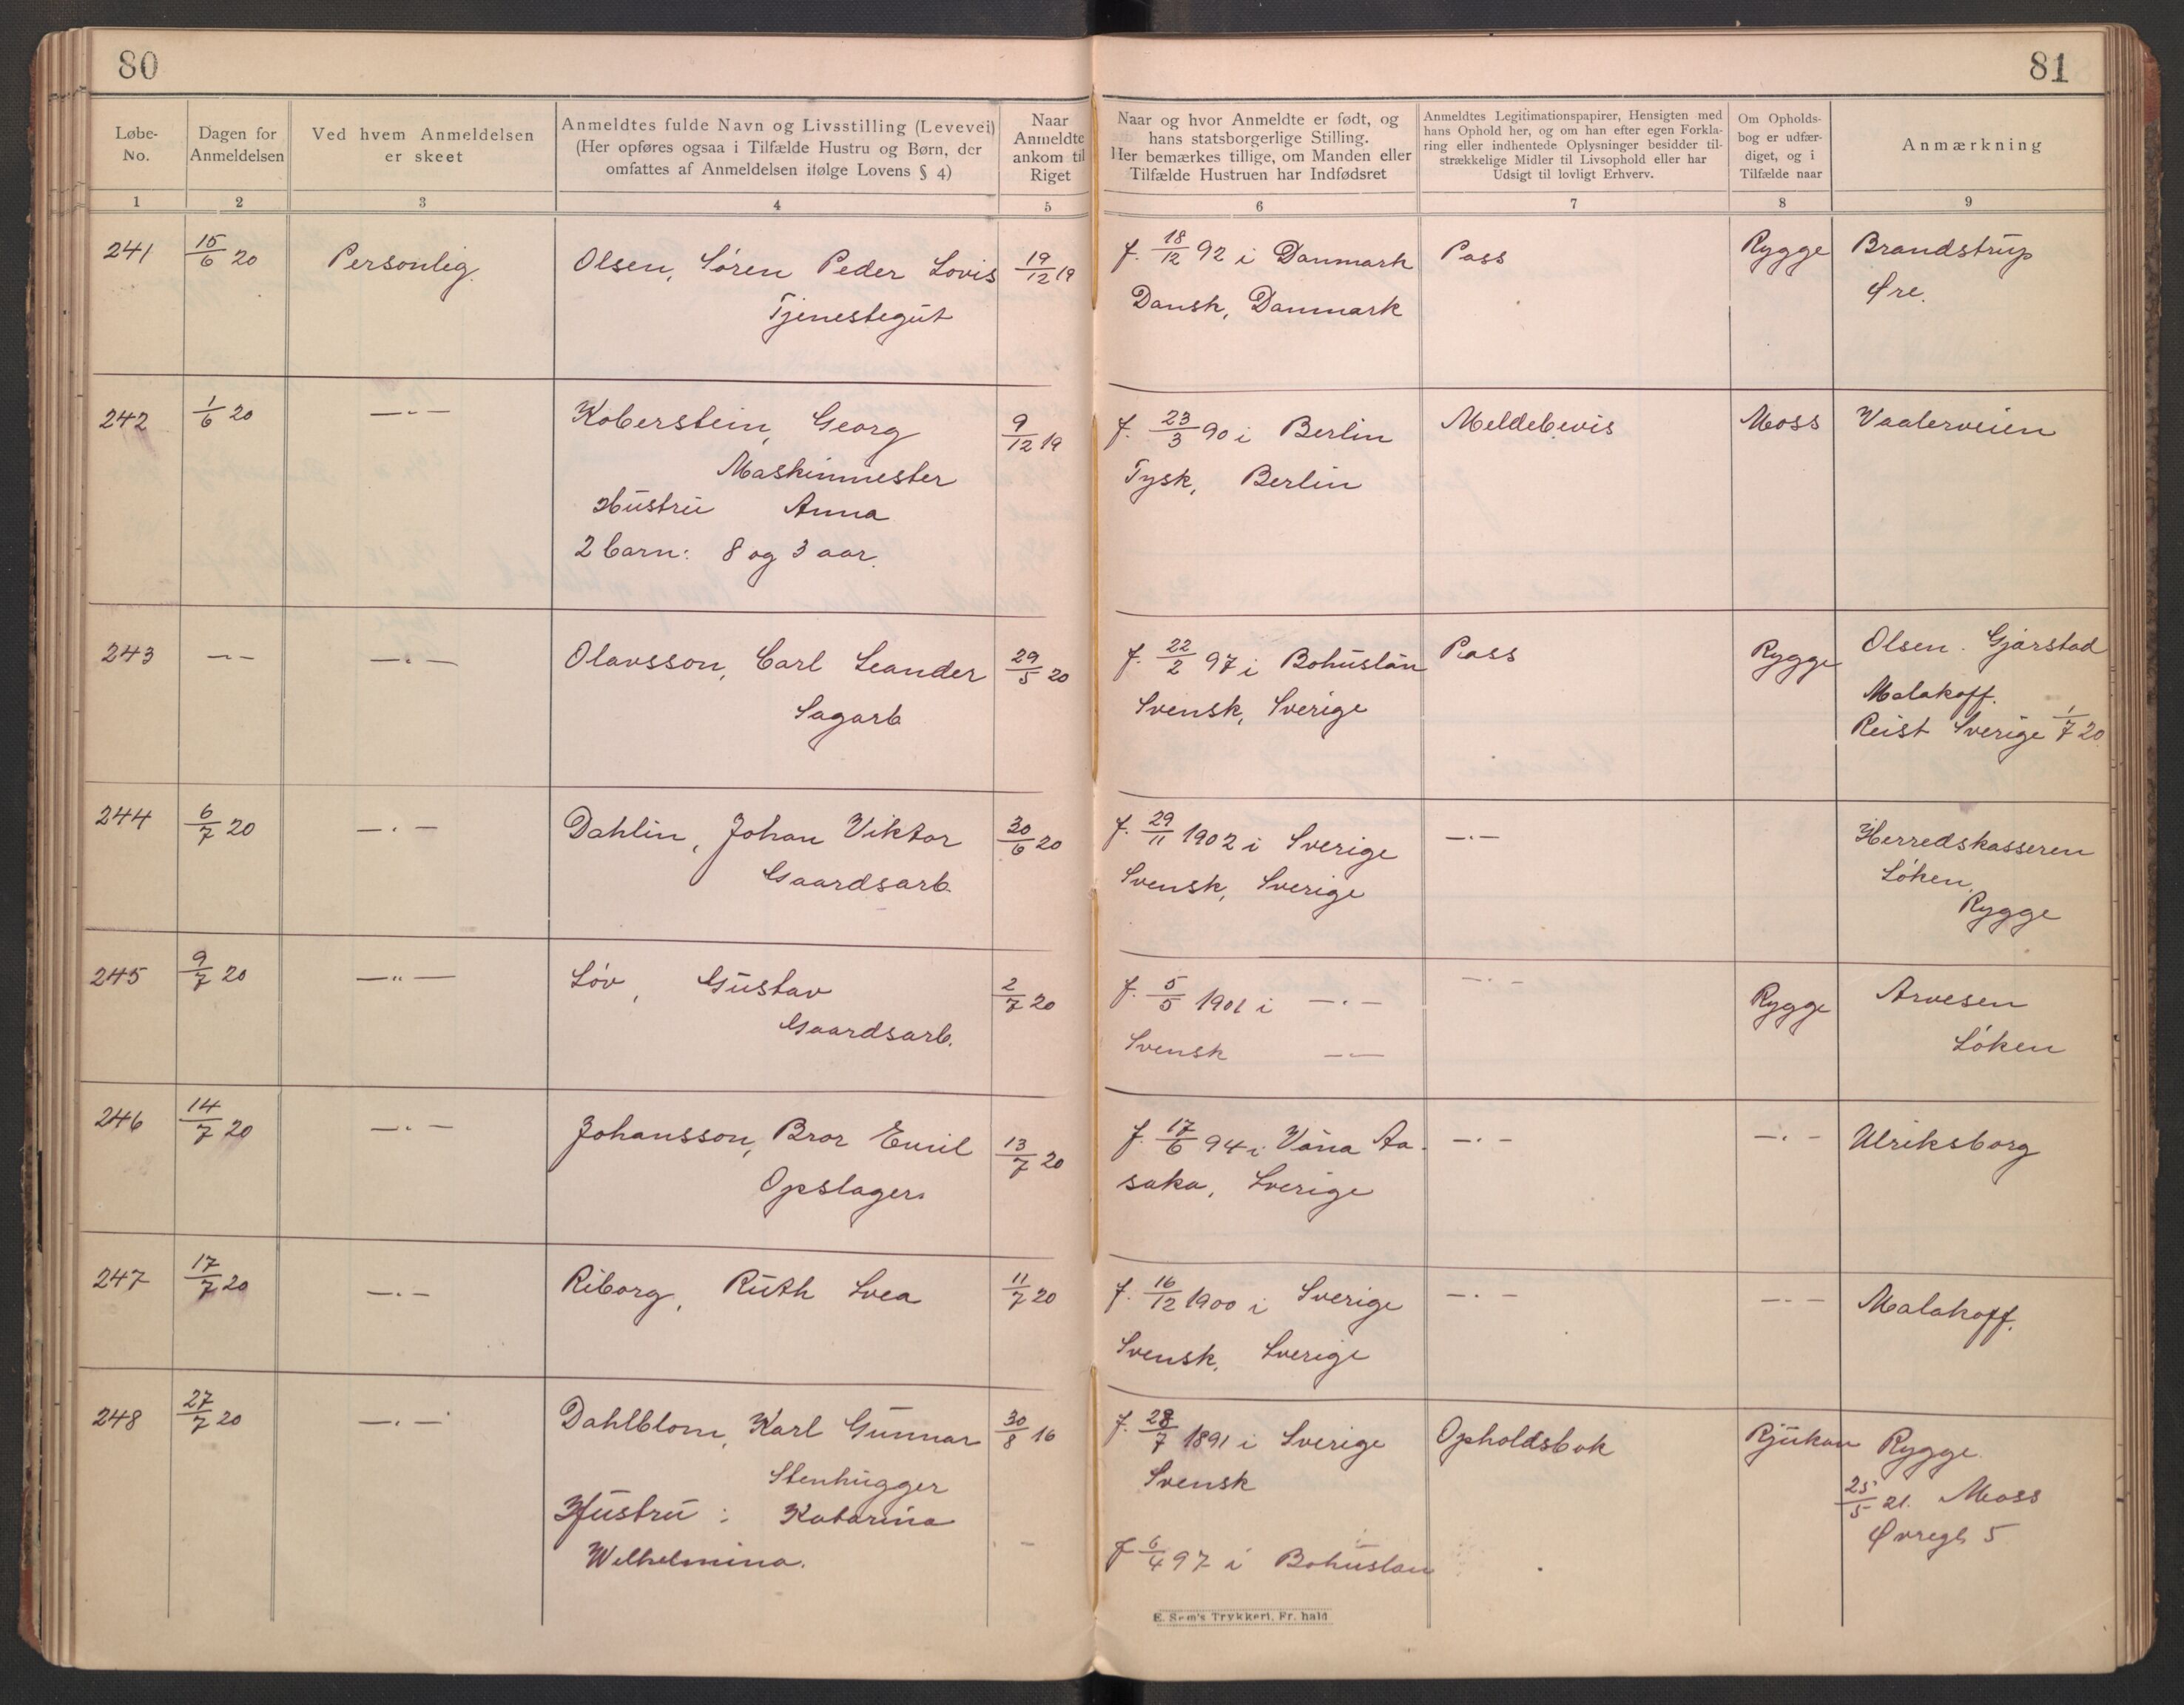 80
81
Løbe-
No.
Dagen for
Anmeldelsen
Ved hvem Anmeldelsen
er skeet
Anmeldtes fulde Navn og Livsstilling (Levevei)
(Her opføres ogsaa i Tilfælde Hustru og Børn, der
omfattes af Anmeldelsen ifølge Lovens § 4)
Naar
Anmeldte
ankom til
Riget
Naar og hvor Anmeldte er født, og
hans statsborgerlige Stilling.
Her bemærkes tillige, om Manden eller
Tilfælde Hustruen har Indfødsret
Anmeldtes Legitimationspapirer, Hensigten med
hans Ophold her, og om han efter egen Forkla-
ring eller indhentede Oplysninger besidder til-
strækkelige Midler til Livsophold eller har
Udsigt til lovligt Erhverv.
Om Opholds-
bog er udfær-
diget, og i
Tilfælde naar
Anmærkning
1 2 3 4 5 6 7 8 9
241 15/6 20 Personlig. Olsen, Søren Peder Lovis 19/12 19 f. 18/12 92 i Danmark Pass Rygge Brandstrup
Tjenestegut Dansk, Danmark Øre.
242 1/6 20 —"— Koberstein, Georg 9/12 19 f. 23/3 90 i Berlin Meldebevis Moss Vaalerveien
Maskinmester Tysk, Berlin
Hustru Anna
2 barn: 8 og 3 aar.
243 —"— —"— Olavsson, Carl Leander 29/5 20 f. 22/2 97 i Bohuslän Pass Rygge Olsen. Gjarstad
Sagarb Svensk, Sverige Malakoff.
Reist Sverige 1/7 20.
244 6/7 20 —"— Dahlin, Johan Viktor 30/6 20 f. 29/11 1902 i Sverige —"— Herredskasseren
Gaardsarb. Svensk, Sverige Løken,
Rygge
245 9/7 20 —"— Løv, Gustav 2/7 20 f. 5/5 1901 i —"— —"— Rygge Arvesen
Gaardsarb. Svensk —"— Løken
246 14/7 20 —"— Johansson, Bror Emil 13/7 20 f. 17/6 94 i Väna Aa- —"— —"— Ulriksborg
Opslager. saka, Sverige
247 17/7 20 —"— Riborg, Ruth Svea 11/7 20 f. 16/12 1900 i Sverige —"— —"— Malakoff.
Svensk, Sverige
248 27/7 20 —"— Dahlblom, Karl Gunnar 30/8 16 f. 28/7 1891 i Sverige Opholdsbok Rjukan Rygge
Stenhugger Svensk 25/5 21. Moss
Hustru: Katarina Øvregt 5
Wilhelmina. f 6/4 97 i Bohuslän
E. Sem's Trykkeri, Fr. hald